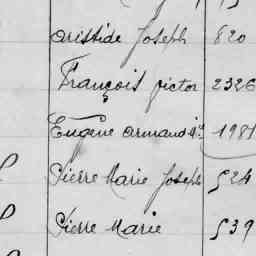 Aristide Joseph 820
François Victor 2326
Eugène Armand 1981
Pierre Marie Joseph 524
Pierre Marie 539